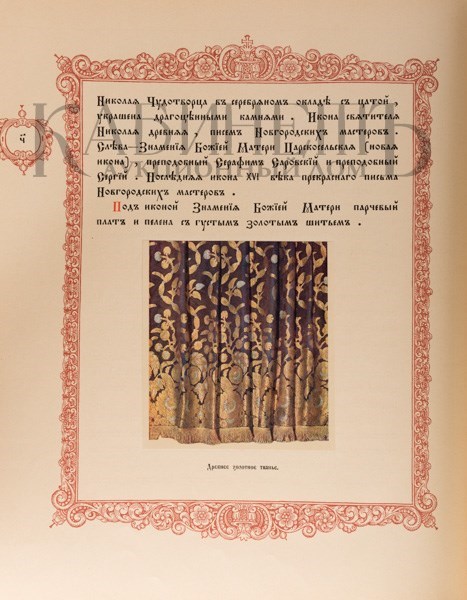 Николая Чудотворца въ серебряномъ окладѣ съ цатой,
украшена драгоцѣнными камнями. Икона святителя
Николая древняя, писемъ Новгородскихъ мастеровъ.
Слѣва Знаменія Божіей Матери Царскосельская (новая
икона), преподобный Серафимъ Саровскій и преподобный
Сергій. Послѣдняя икона XVI вѣка прекраснаго письма
Новгородскихъ мастеровъ.
Подъ иконой Знаменія Божіей Матери парчевый
платъ и пелена съ густымъ золотымъ шитьемъ.
Древнее золотное тканье.
КАБИНЕТЪ
АУКЦИОННЫЙ ДОМ